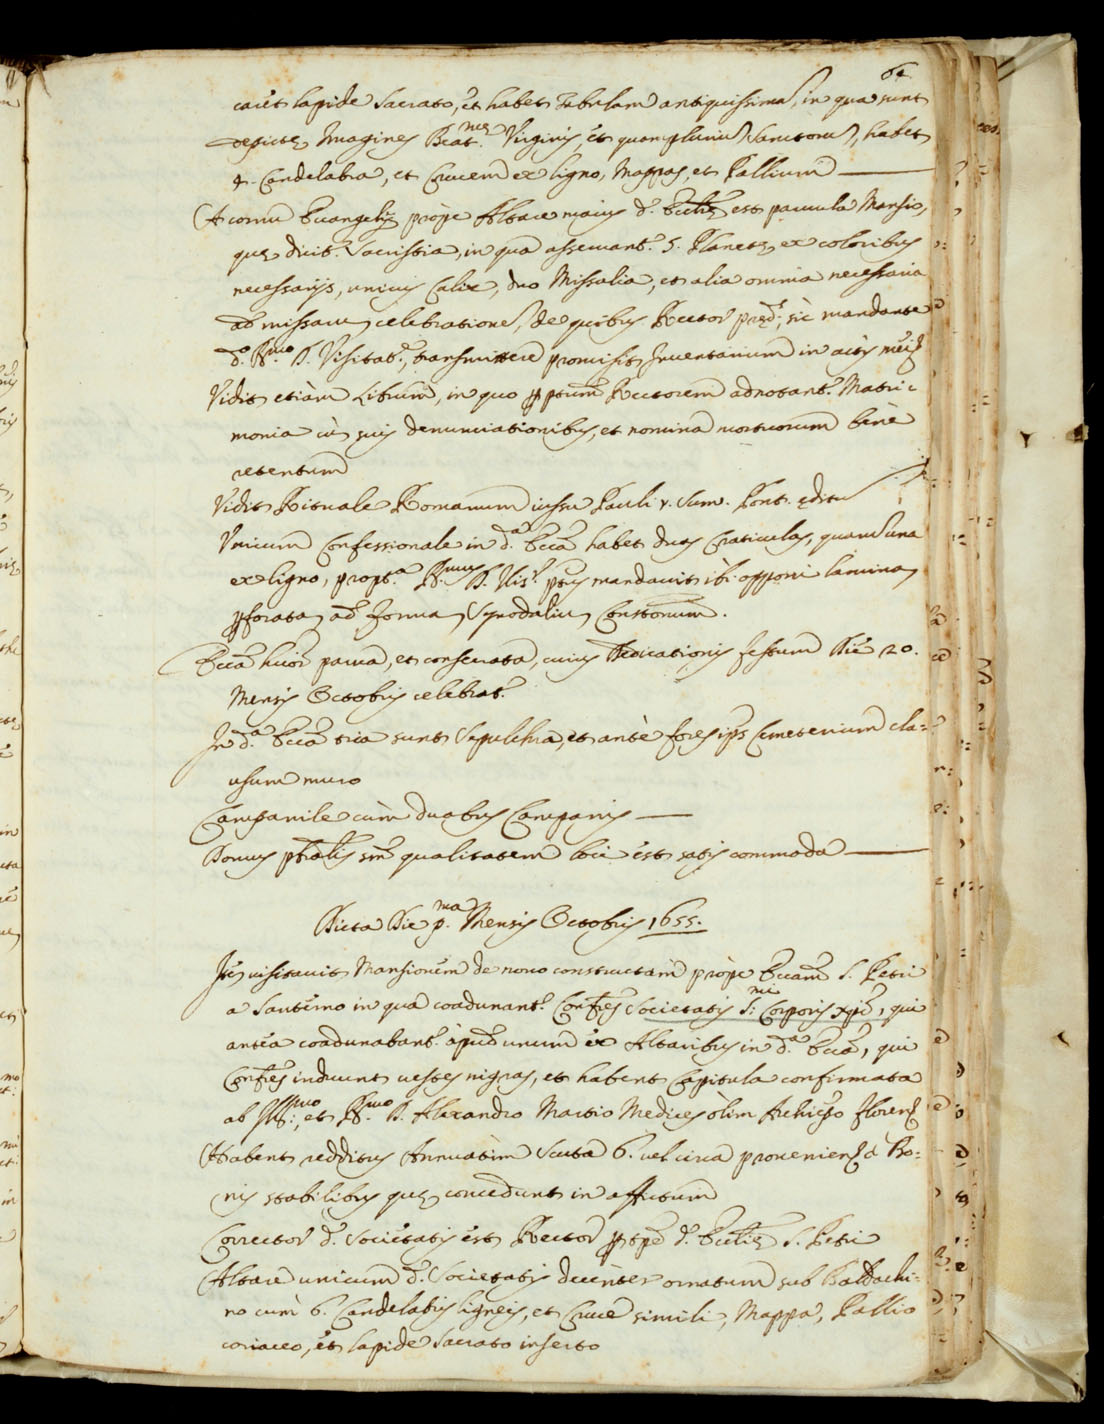 64
caret lapide Sacrato, et habet Tabulam antiquissimã, in qua sunt
depictę Imagines Beat.mę Virginis, et quamplurium Sanctorũ, habet
4. Candelabra, et Crucem ex ligno, Mappas, et Pallium
A cornu Euangelij propè Altare maius d. Ecclię est paruula Mansio,
quę dicit. Sacristia, in qua asseruant. 5. Planetę ex coloribus
necessarijs, unicus Calix, duo Missalia, et alia omnia necessaria
ad missarum celebrationẽ, de quibus Rector pręd.s, sic mandante
d.o R.mo D. Visitat.e, transmittere promisit Inuentarium in actis
Vidit etiàm Librum, in quo p ptum Rectorem adnotant. Matri-
monia cũ suis denunciationibus, et nomina mortuorum benè
retentum
Vidit Rituale Romanum iussu Pauli V. Sum. Pont. ęditũ
Unicum Confessionale in d.a Eccã habet duas Craticulas, quarum una
ex ligno, propt.a R.mus D. Vis.r ptus mandauit ibi opponi laminam
pforatam ad formam Synodalium Constonum.
Eccã huiõi parua, et consecrata, cuius Dedicationis festum Die 20.
Mensis Octobris celebrat.r
In d.a Eccã tria sunt Sepulchra, et antè fores ips Cimeterium cla=
usum muro
Campanile cùm duabus Campanis
Domus pbralis sm̃ qualitatem loci est satis commoda
Dicta Die p.ma Mensis Octobris 1655.
Itẽ uisitauit Mansionem de nono constructam propè Eccam S. Petri
a Santerno in qua coadunant.r Confres Societatis S.mi Corporis xpi, qui
antea coadunabant. apud unum ex Altaribus in d.a Eccã, qui
Confres induunt uestes nigras, et habent Capitula confirmata
ab Ill.mo, et R.mo D. Alexandro Martio Medices olim Archiepo Floren.
Habent redditus Annuatim Scuta 6. uel circa prouenien. à Bo=
nis stabilibus quę concedunt in affictum
Corrector d. Societatis est Rector p tpe d. Ecclię S. Petri
Altare unicum d. Societatis decenter ornatum sub Baldachi=
no cum 6. Candelabris ligneis, et Cruce simili, Mappa, Pallio
coriaceo, et lapide Sacrato inserto